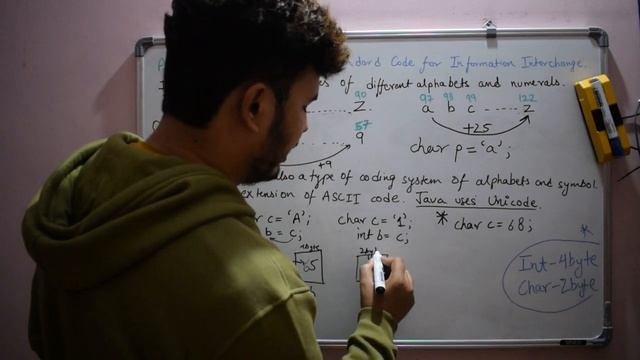 ndard Code for Information Interchange.
es of different alphabets and numerals.
90 97 98 99 122
Z a b c ----- z
+25
57
9
char p = 'a';
+9
also a type of coding system of alphabets and symbol.
extension of ASCII code. Java uses Unicode.
c = 'A'; char c = '1'; * char c = 68;
b = c; int b = c;
*
65
Int - 4byte
Char - 2byte